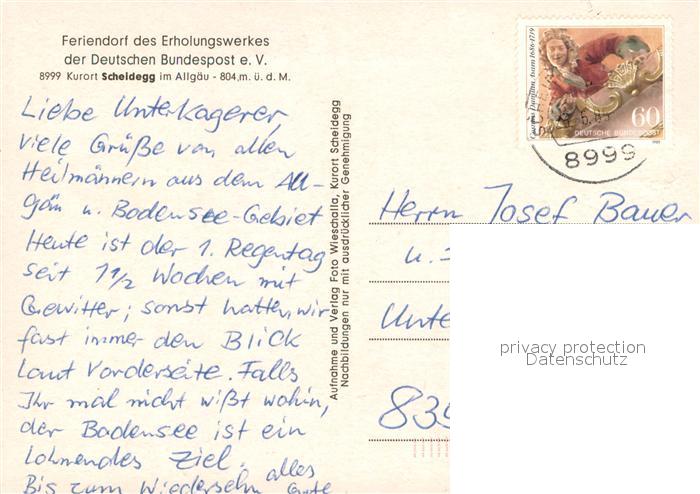 Feriendorf des Erholungswerkes
der Deutschen Bundespost e. V.
8999 Kurort Scheidegg im Allgäu - 804,m. ü. d. M.
Liebe Unterkagerer,
viele Grüße von allen
Heilmännern aus dem All-
gäu u. Bodensee-Gebiet
Heute ist der 1. Regentag
seit 1 1/2 Wochen mit
Gewitter; sonst hatten wir
fast immer den Blick
laut Vorderseite. Falls
Ihr mal nicht wißt wohin,
der Bodensee ist ein
lohnendes Ziel.
Bis zum Wiedersehn alles Gute
Aufnahme und Verlag Foto Wieschalla, Kurort Scheidegg
Nachbildungen nur mit ausdrücklicher Genehmigung
Cosmas Damian Asam 1686-1739
60
DEUTSCHE BUNDESPOST
8999
Herrn Josef Bauer
u.
Unte
839
privacy protection
Datenschutz